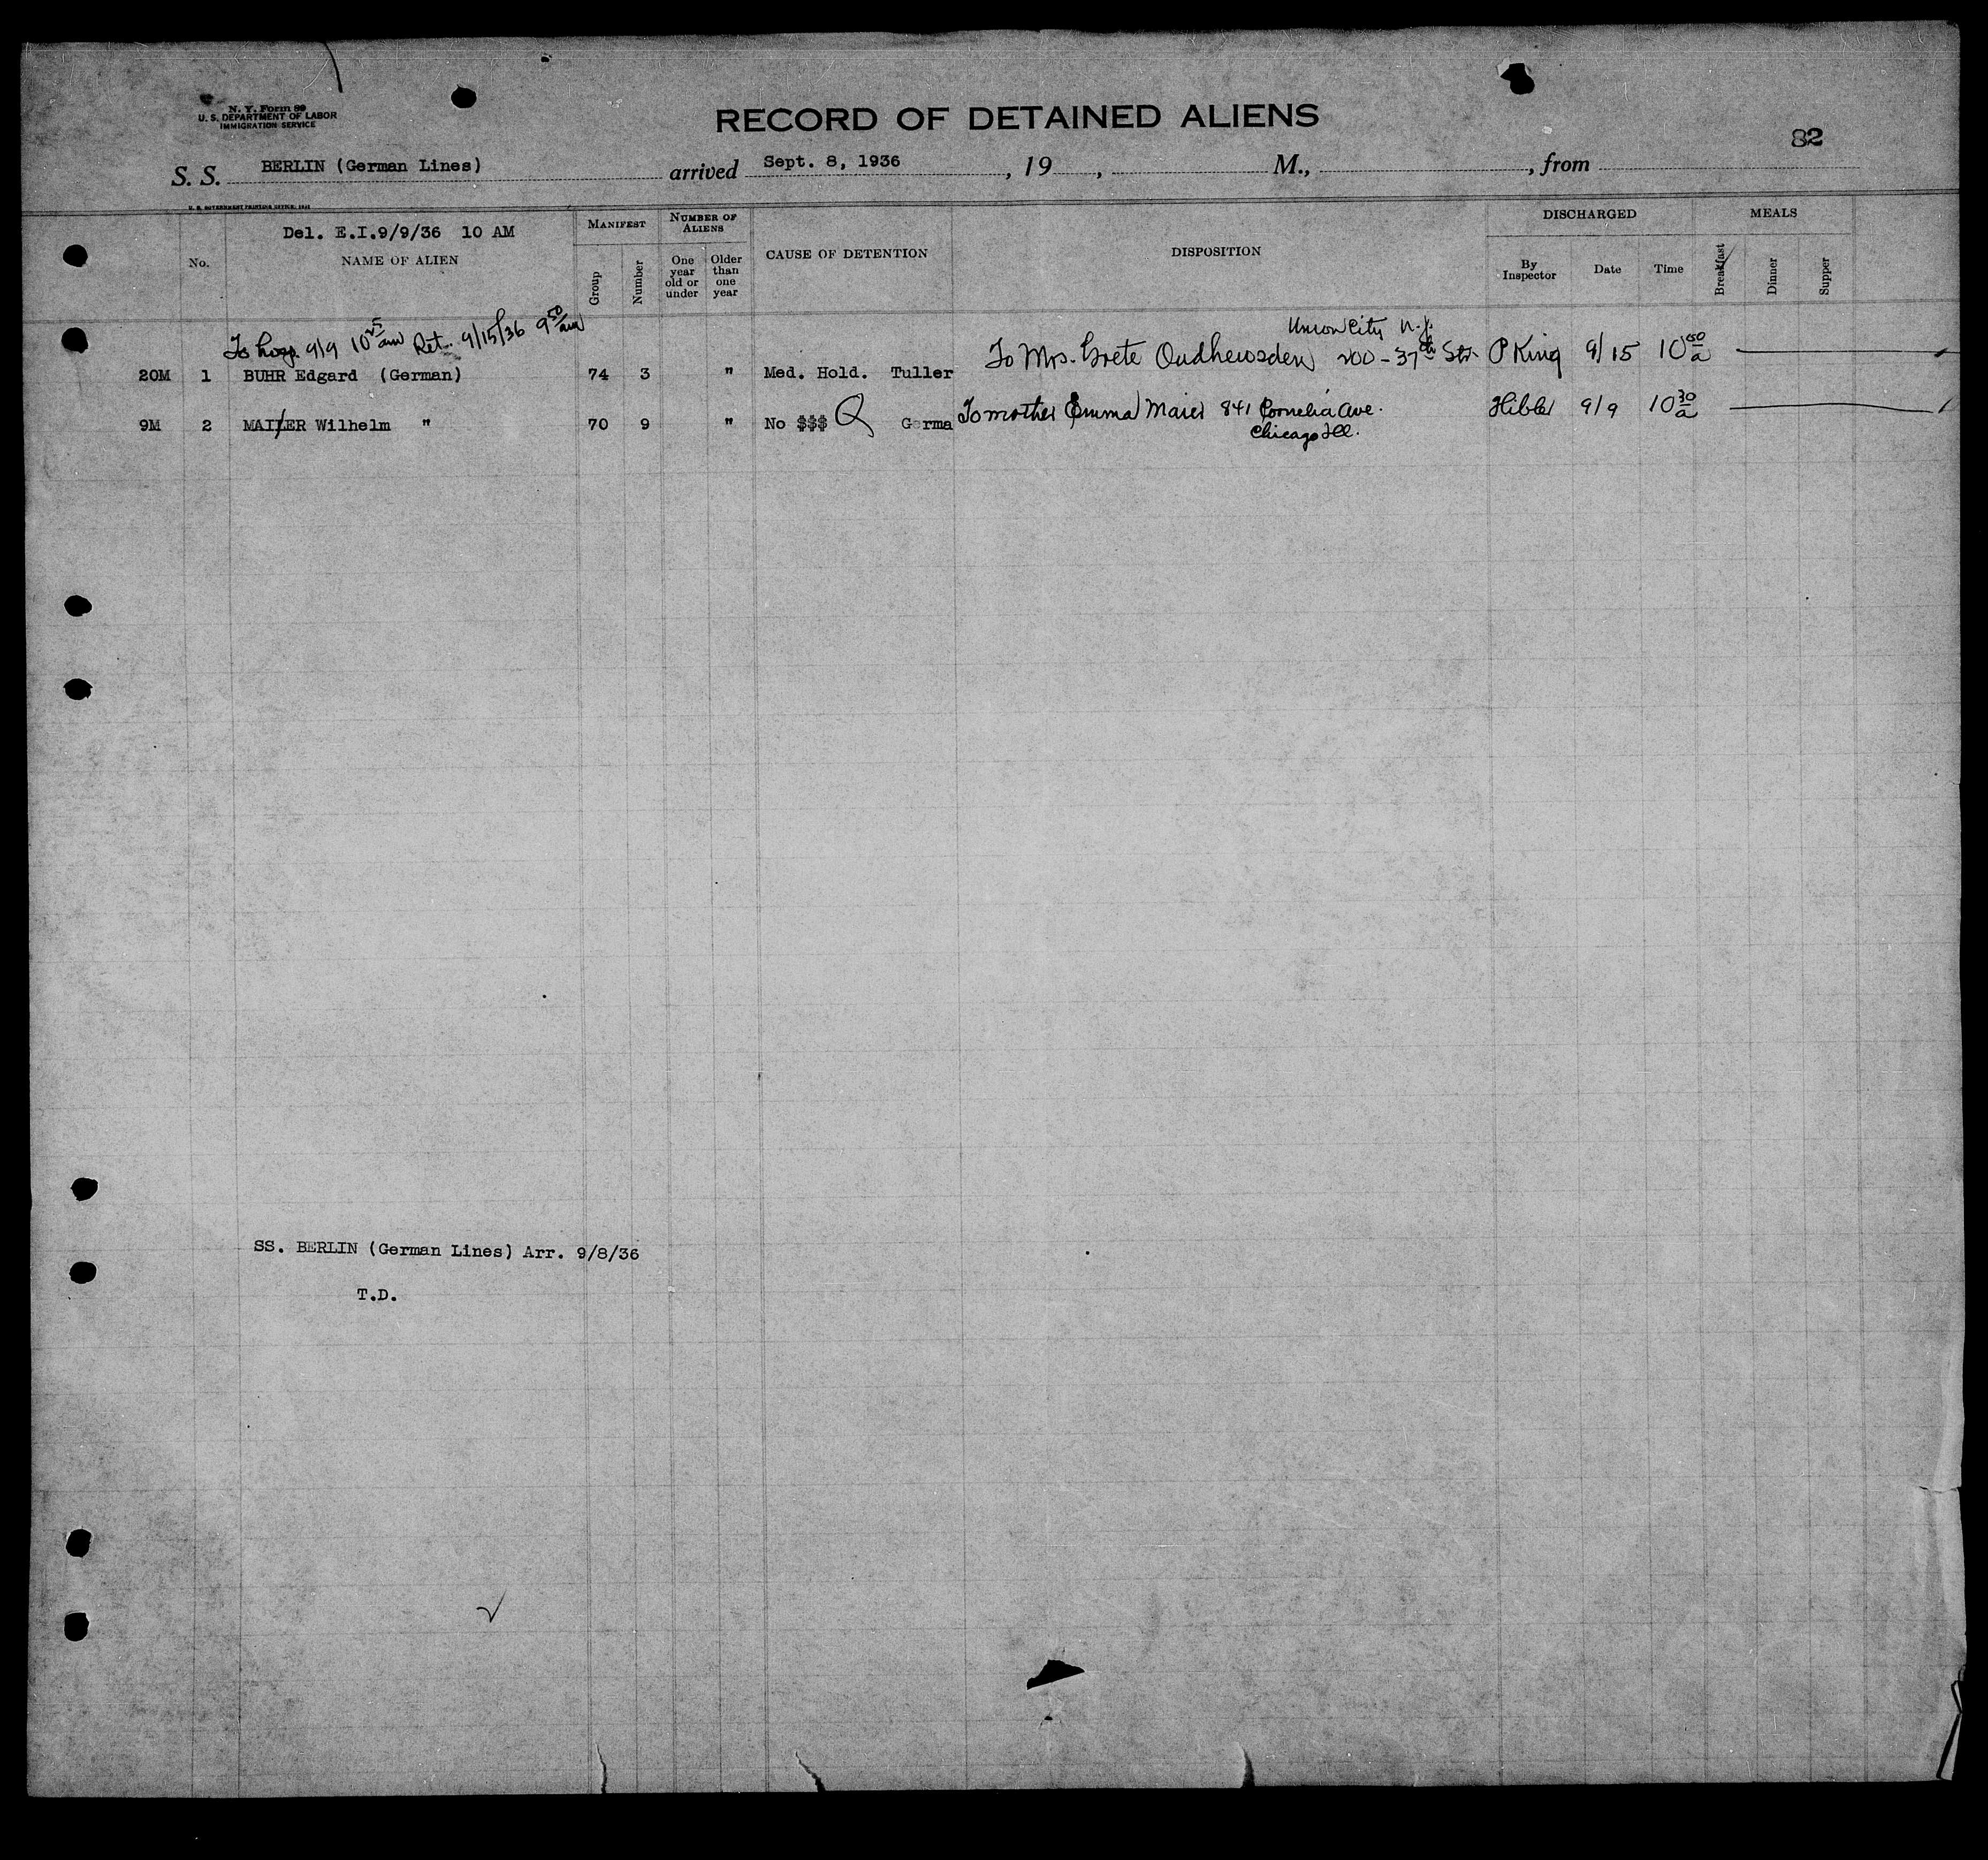 N. Y. Form 89
U. S. DEPARTMENT OF LABOR
IMMIGRATION SERVICE
RECORD OF DETAINED ALIENS
82
S. S. BERLIN (German Lines) arrived Sept. 8, 1936 , 19 , M., , from
U. S. GOVERNMENT PRINTING OFFICE: 1931
Del. E.I.9/9/36 10 AM
No. NAME OF ALIEN
MANIFEST
Group Number
NUMBER OF ALIENS
One year old or under
Older than one year
CAUSE OF DETENTION
DISPOSITION
DISCHARGED
By Inspector Date Time
MEALS
Breakfast Dinner Supper
To hosp. 9/9 10 25 am Ret. 9/15/36 9 50 am
Union City N.J.
20M 1 BUHR Edgard (German) 74 3 " Med. Hold. Tuller To Mrs. Grete Oudheusden 200 - 37th Str. P King 9/15 10 a
9M 2 MAIER Wilhelm " 70 9 " No $$$ Q Germa To mother Emma Maier 841 Cornelia Ave. 9/9 10 30 a
Chicago Ill.
SS. BERLIN (German Lines) Arr. 9/8/36
T.D.